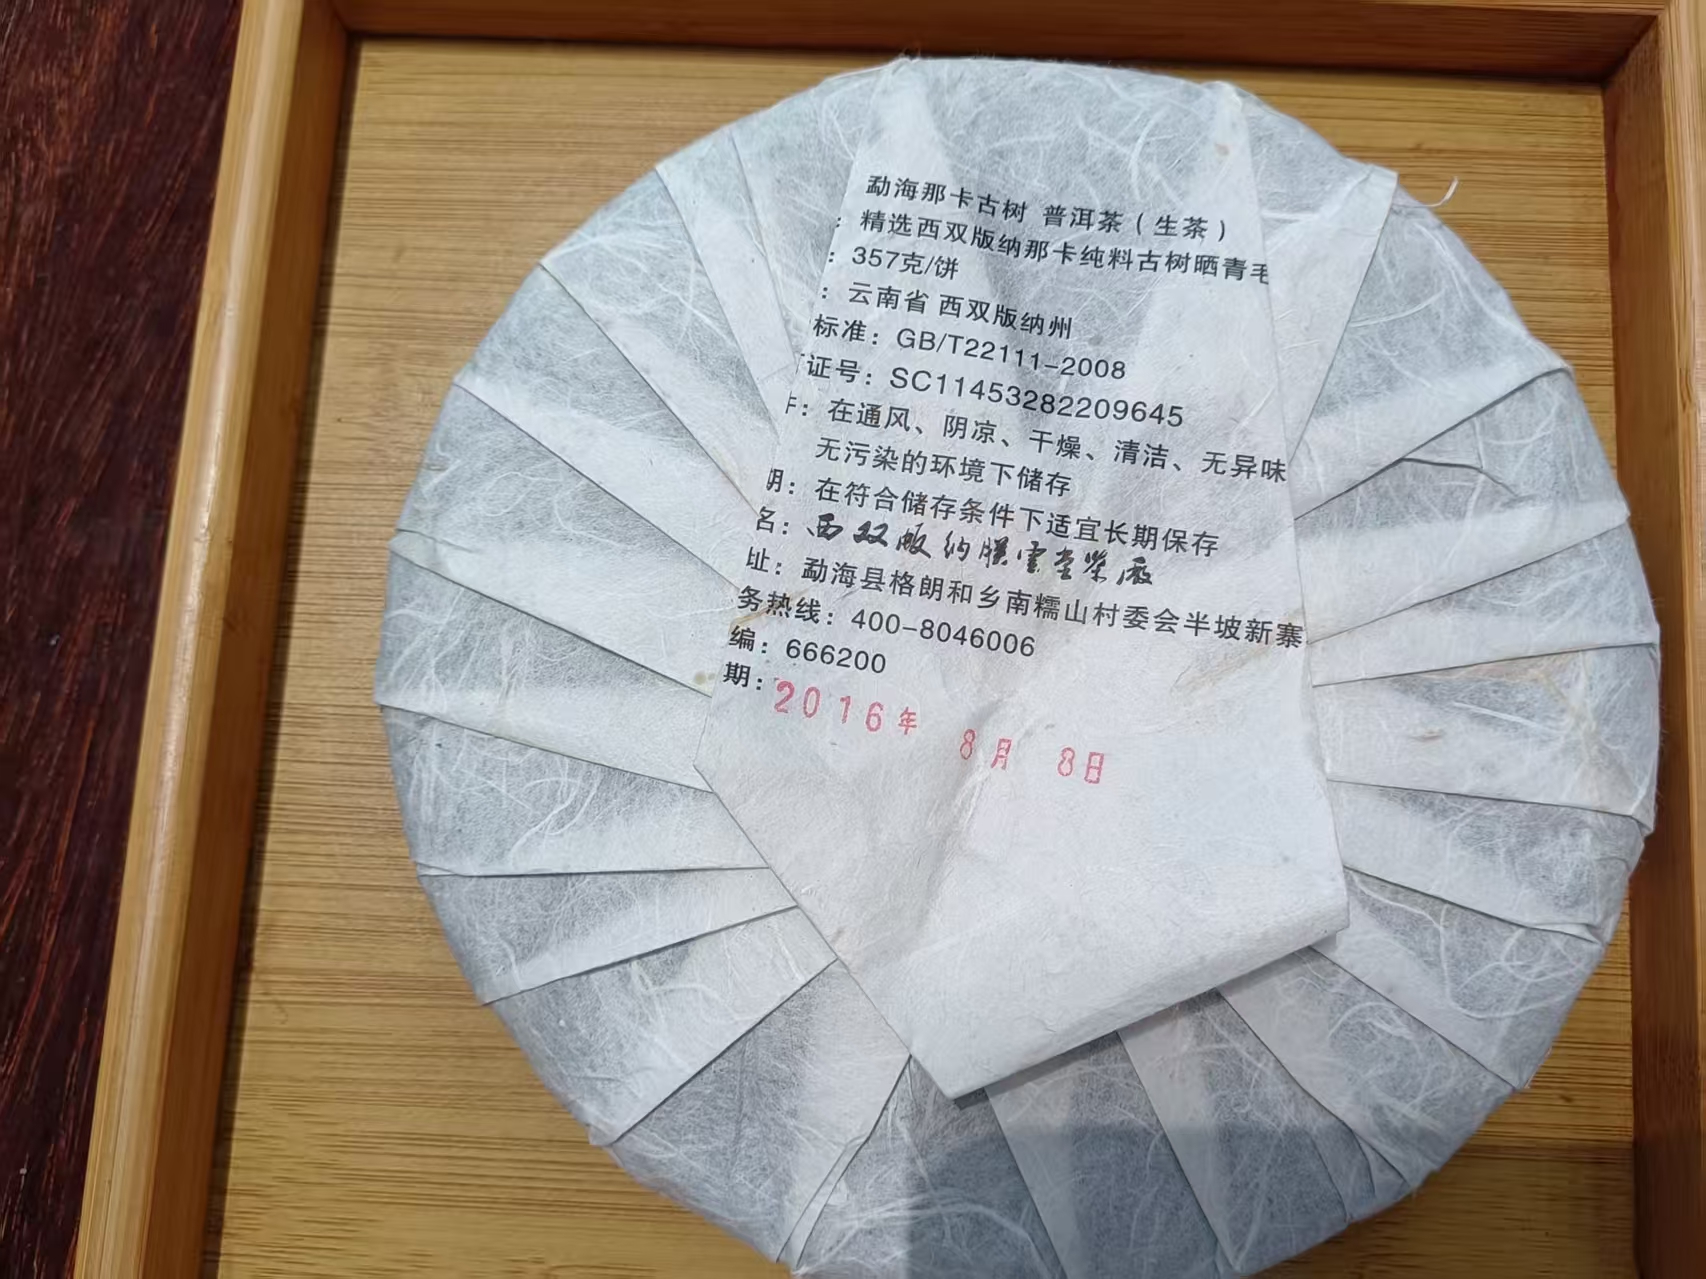 勐海那卡古树 普洱茶（生茶）
：精选西双版纳那卡纯料古树晒青毛
：357克/饼
：云南省 西双版纳州
标准：GB/T22111-2008
证号：SC11453282209645
：在通风、阴凉、干燥、清洁、无异味
无污染的环境下储存
期：在符合储存条件下适宜长期保存
名：西双版纳 茶厂
址：勐海县格朗和乡南糯山村委会半坡新寨
务热线：400-8046006
编：666200
期：2016年 8月 8日